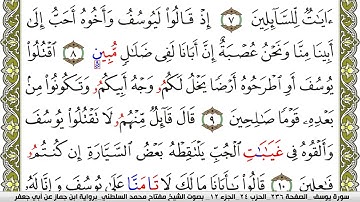 ءَايَٰتٌ لِّلسَّآئِلِينَ ٧ إِذْ قَالُواْ لَيُوسُفُ وَأَخُوهُ أَحَبُّ إِلَىٰ
أَبِينَا مِنَّا وَنَحْنُ عُصْبَةٌ إِنَّ أَبَانَا لَفِي ضَلَٰلٍ مُّبِينٍ ٨ اُقْتُلُواْ
يُوسُفَ أَوِ اِطْرَحُوهُ أَرْضًا يَخْلُ لَكُمُۥ وَجْهُ أَبِيكُمُۥ وَتَكُونُواْ مِنۢ
بَعْدِهِۦ قَوْمًا صَٰلِحِينَ ٩ قَالَ قَآئِلٌ مِّنْهُمُۥ لَا تَقْتُلُواْ يُوسُفَ
وَأَلْقُوهُ فِي غَيَٰبَٰتِ اِلْجُبِّ يَلْتَقِطْهُ بَعْضُ اُلسَّيَّارَةِ إِن كُنتُمُۥ
فَٰعِلِينَ ١٠ قَالُواْ يَٰٓأَبَانَا مَا لَكَ لَا تَامَنَّا عَلَىٰ يُوسُفَ وَإِنَّا لَهُۥ
سورة يوسف الصفحة ٢٣٦ الحزب ٢٤ الجزء ١٢ بصوت الشيخ مفتاح محمد السلطني برواية ابن جماز عن أبي جعفر